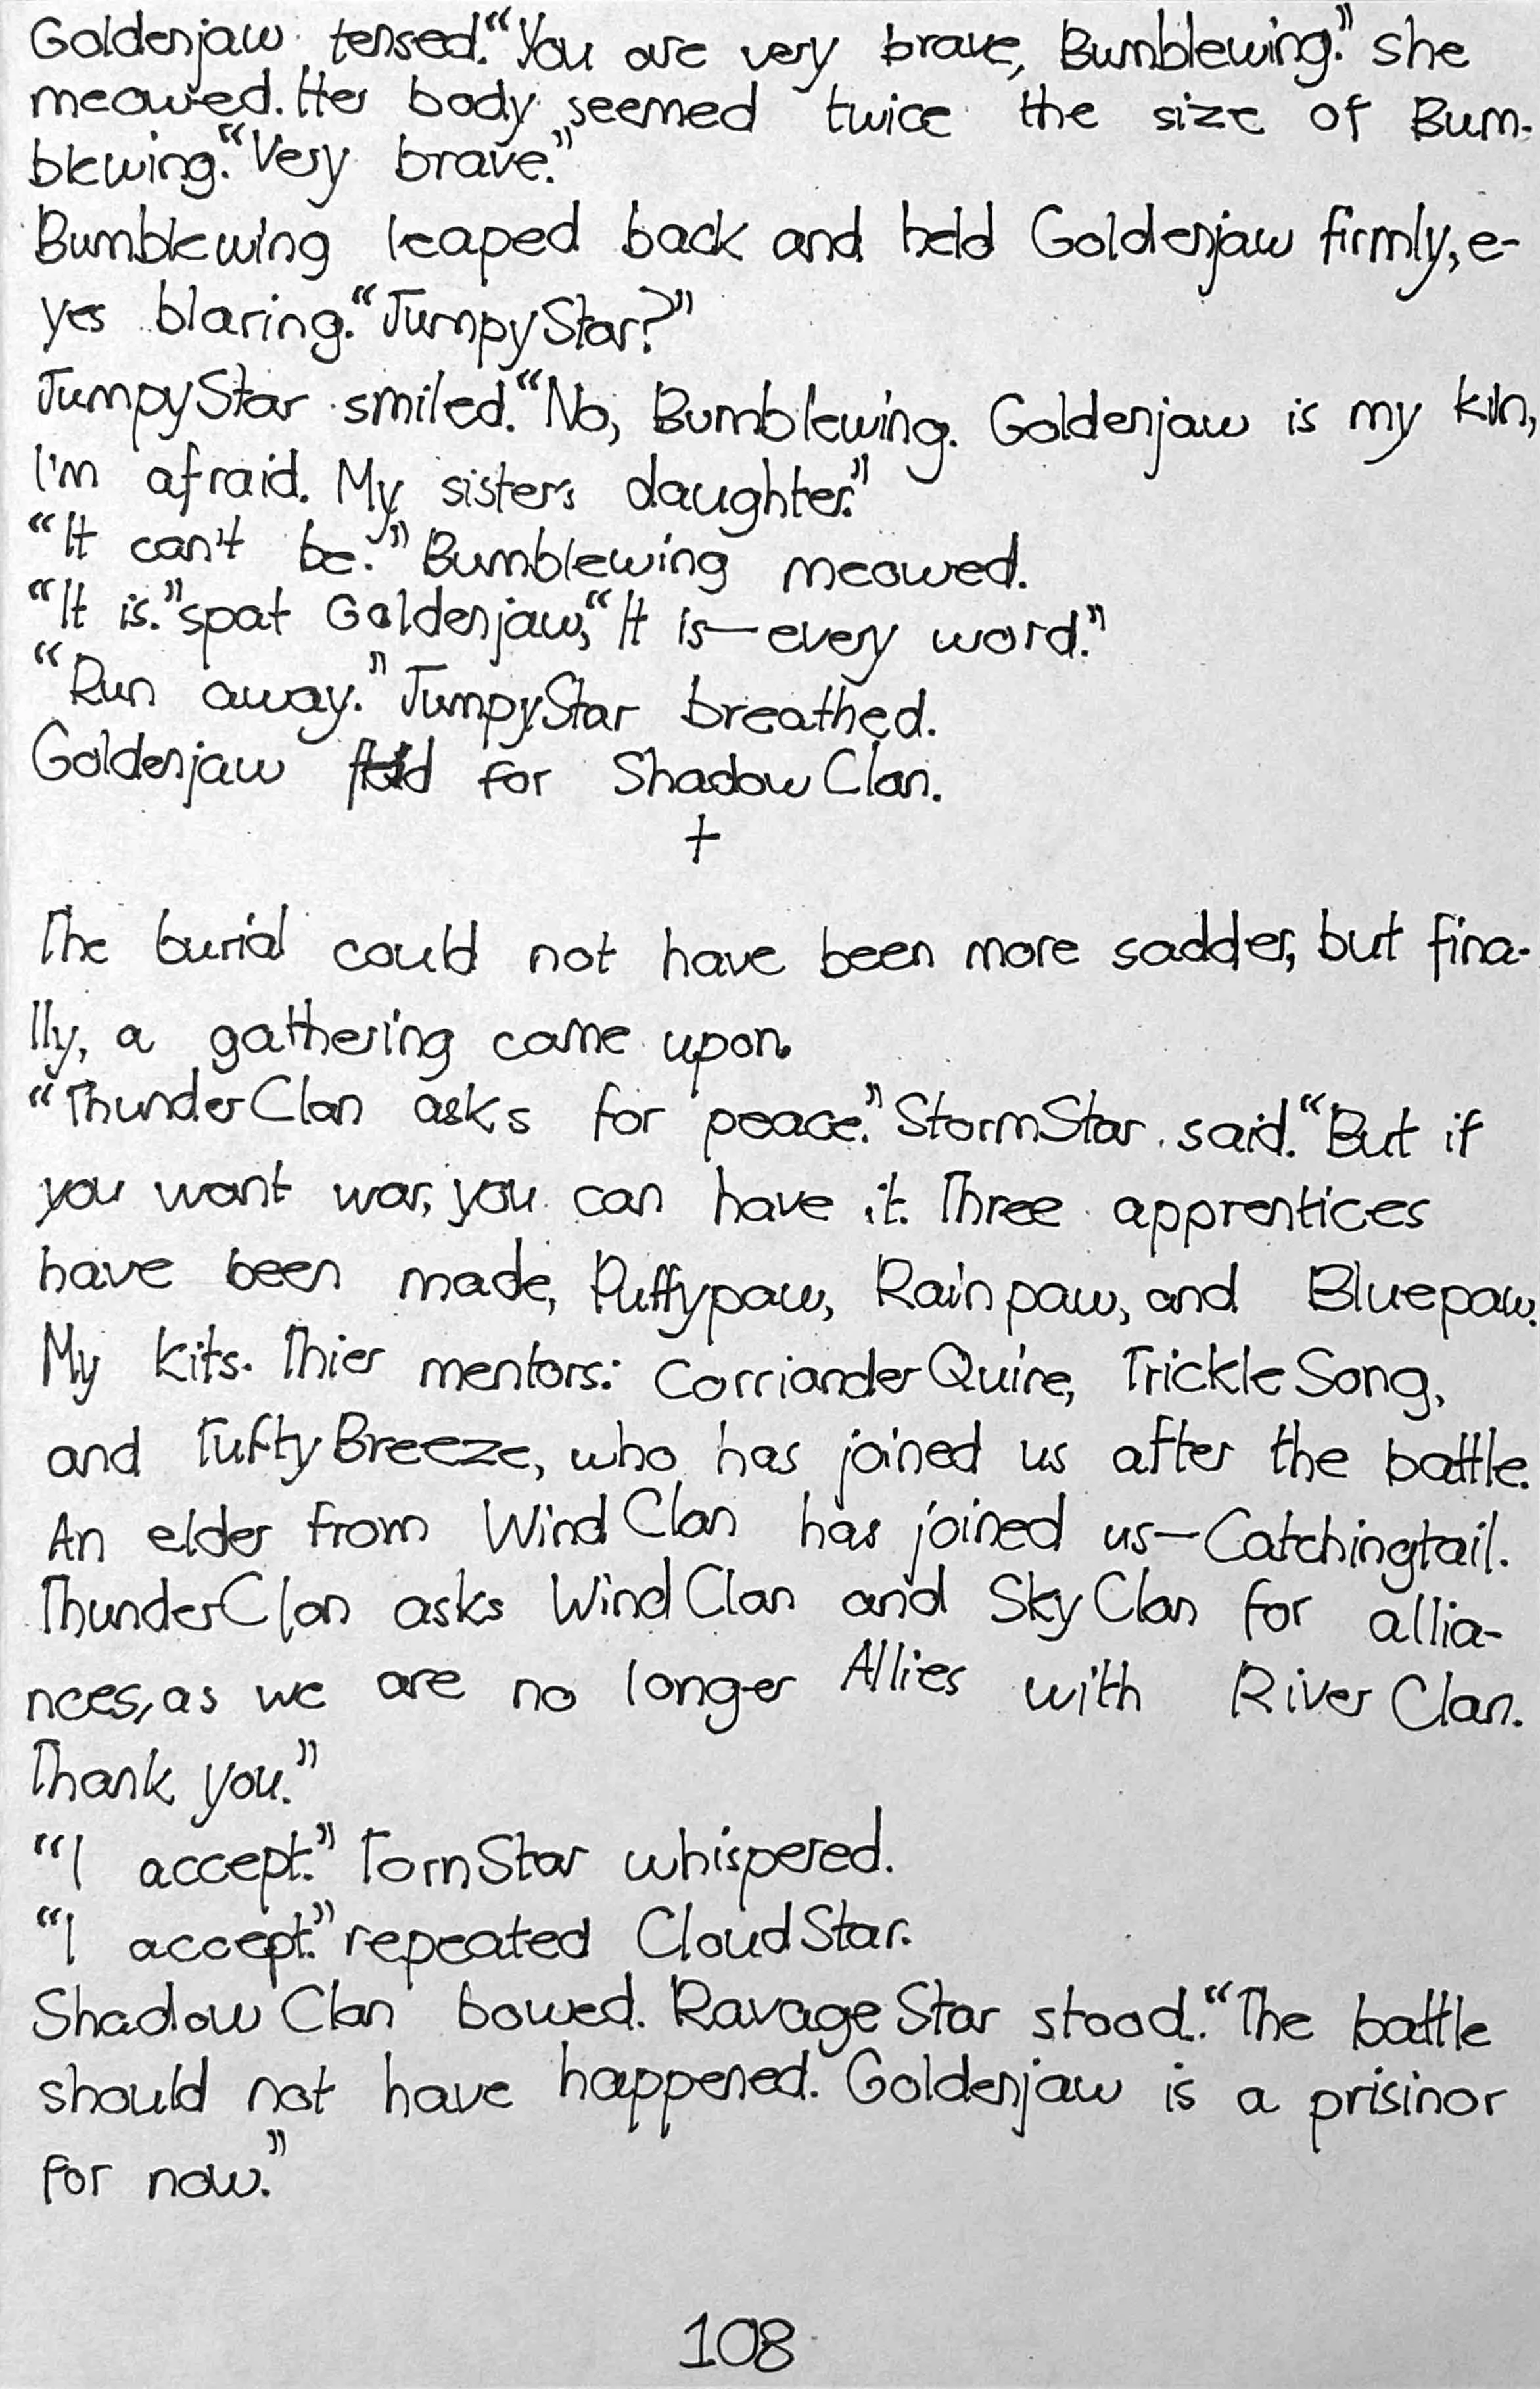 Goldenjaw tensed. “You are very brave, Bumblewing.” she
meowed. Her body seemed twice the size of Bum-
blewing. “Very brave.”
Bumblewing leaped back and held Goldenjaw firmly, e-
yes blaring. “JumpyStar?”
JumpyStar smiled. “No, Bumblewing. Goldenjaw is my kin,
I'm afraid. My sisters daughter.”
“It can't be.” Bumblewing meowed.
“It is.” spat Goldenjaw, “It is—every word.”
“Run away.” JumpyStar breathed.
Goldenjaw for ShadowClan.
+
The burial could not have been more sadder, but fina-
lly, a gathering came upon.
“ThunderClan asks for peace.” StormStar said. “But if
you want war, you can have it. Three apprentices
have been made, Puffypaw, Rainpaw, and Bluepaw.
My kits. Thier mentors: CorrianderQuire, TrickleSong,
and TuftyBreeze, who has joined us after the battle.
An elder from WindClan has joined us—Catchingtail.
ThunderClan asks WindClan and SkyClan for allia-
nces, as we are no longer Allies with RiverClan.
Thank you.”
“I accept.” TornStar whispered.
“I accept.” repeated CloudStar.
ShadowClan bowed. RavageStar stood. “The battle
should not have happened. Goldenjaw is a prisinor
for now.”
108